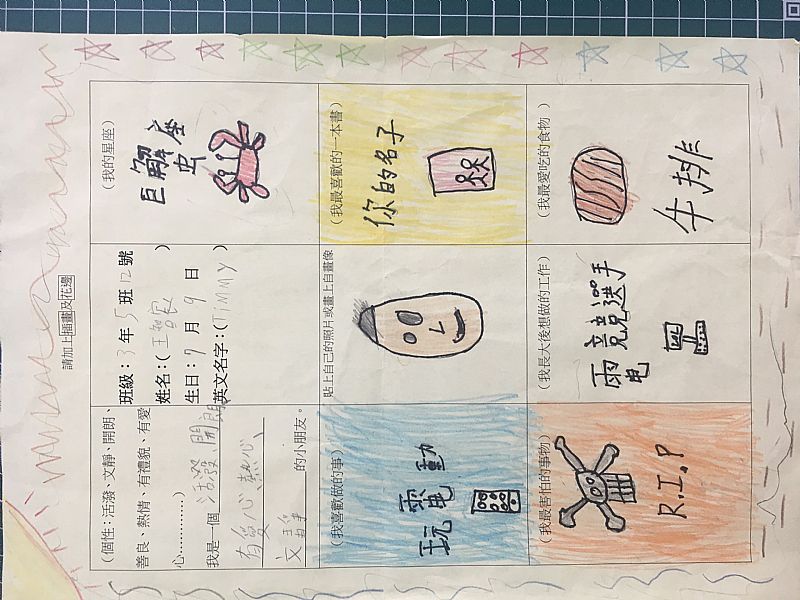 請加上插畫及花邊
(個性：活潑、文靜、開朗、
善良、熱情、有禮貌、有愛
心…………)
我是一個 活潑、開朗
有愛心、熱心、
文靜 的小朋友。
班級：3 年 5 班 12 號
姓名：(王智家)
生日：7 月 9 日
英文名字：(TIMMY)
(我的星座)
巨蟹座
(我喜歡做的事)
玩電動
貼上自己的照片或畫上自畫像
(我最喜歡的一本書)
你的名子
(我最害怕的事物)
R.I.P
(我長大後想做的工作)
電競選手
(我最愛吃的食物)
牛排